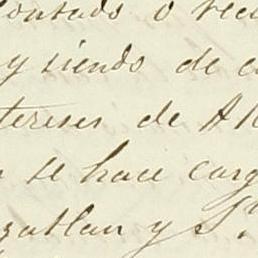 Contado o rec
y siendo de c
tereses de A
se hace carg
zatlan y S.